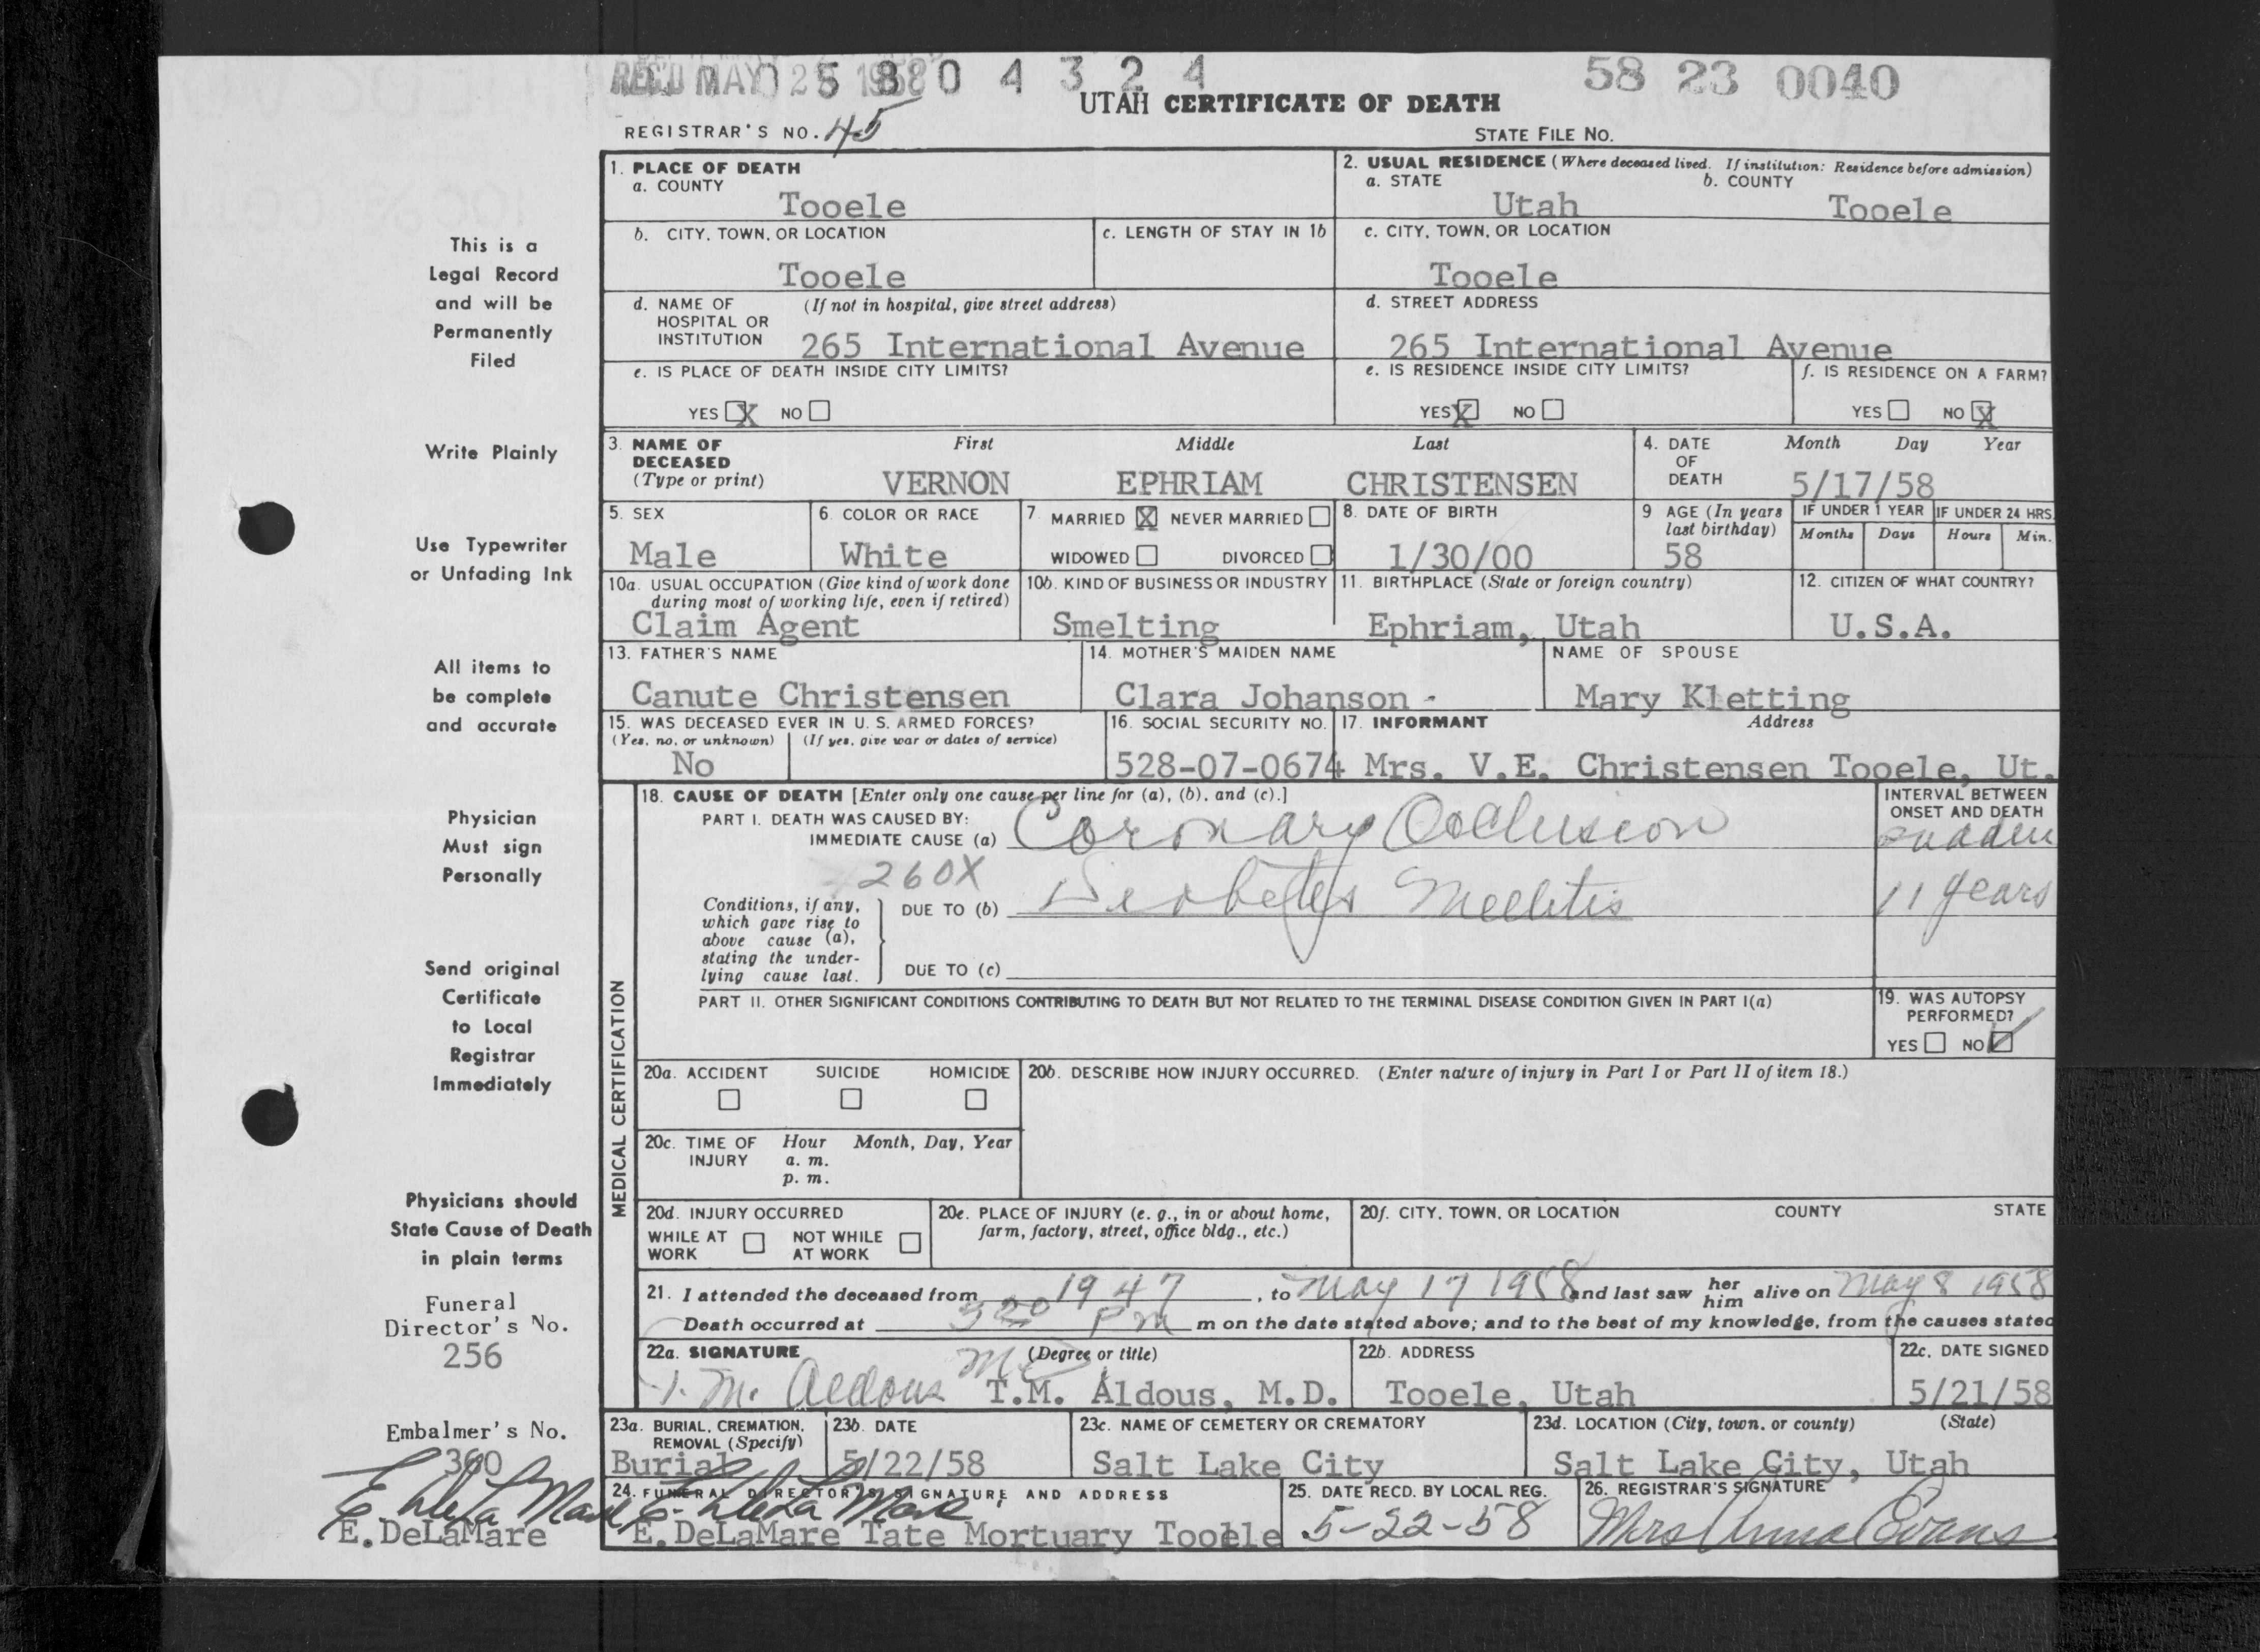 REC'D MAY 26 1958
0 5 8 0 4 3 2 4
58 23 0040
UTAH CERTIFICATE OF DEATH
REGISTRAR'S NO. 45
STATE FILE NO.
This is a
Legal Record
and will be
Permanently
Filed
Write Plainly
Use Typewriter
or Unfading Ink
All items to
be complete
and accurate
Physician
Must sign
Personally
Send original
Certificate
to Local
Registrar
Immediately
Physicians should
State Cause of Death
in plain terms
Funeral
Director's No.
256
Embalmer's No.
360
E. DeLaMare
E.DeLaMare
1. PLACE OF DEATH
a. COUNTY
Tooele
2. USUAL RESIDENCE (Where deceased lived. If institution: Residence before admission)
a. STATE b. COUNTY
Utah Tooele
b. CITY, TOWN, OR LOCATION
Tooele
c. LENGTH OF STAY IN 1b
c. CITY, TOWN, OR LOCATION
Tooele
d. NAME OF (If not in hospital, give street address)
HOSPITAL OR
INSTITUTION 265 International Avenue
d. STREET ADDRESS
265 International Avenue
e. IS PLACE OF DEATH INSIDE CITY LIMITS?
YES X NO
e. IS RESIDENCE INSIDE CITY LIMITS?
YES X NO
f. IS RESIDENCE ON A FARM?
YES NO X
3. NAME OF First Middle Last
DECEASED
(Type or print) VERNON EPHRIAM CHRISTENSEN
4. DATE Month Day Year
OF
DEATH 5/17/58
5. SEX
Male
6. COLOR OR RACE
White
7. MARRIED X NEVER MARRIED
WIDOWED DIVORCED
8. DATE OF BIRTH
1/30/00
9 AGE (In years
last birthday)
58
IF UNDER 1 YEAR
Months Days
IF UNDER 24 HRS.
Hours Min.
10a. USUAL OCCUPATION (Give kind of work done
during most of working life, even if retired)
Claim Agent
10b. KIND OF BUSINESS OR INDUSTRY
Smelting
11. BIRTHPLACE (State or foreign country)
Ephriam, Utah
12. CITIZEN OF WHAT COUNTRY?
U.S.A.
13. FATHER'S NAME
Canute Christensen
14. MOTHER'S MAIDEN NAME
Clara Johanson -
NAME OF SPOUSE
Mary Kletting
15. WAS DECEASED EVER IN U. S. ARMED FORCES?
(Yes, no, or unknown) (If yes, give war or dates of service)
No
16. SOCIAL SECURITY NO.
528-07-0674
17. INFORMANT Address
Mrs. V.E. Christensen Tooele, Ut.
MEDICAL CERTIFICATION
18. CAUSE OF DEATH [Enter only one cause per line for (a), (b), and (c).]
PART I. DEATH WAS CAUSED BY:
IMMEDIATE CAUSE (a) Coronary Occlusion
INTERVAL BETWEEN
ONSET AND DEATH
sudden
260X
Conditions, if any,
which gave rise to
above cause (a),
stating the under-
lying cause last.
DUE TO (b) Diabetes Mellitis
11 years
DUE TO (c)
PART II. OTHER SIGNIFICANT CONDITIONS CONTRIBUTING TO DEATH BUT NOT RELATED TO THE TERMINAL DISEASE CONDITION GIVEN IN PART I(a)
19. WAS AUTOPSY
PERFORMED?
YES NO ✓
20a. ACCIDENT SUICIDE HOMICIDE
20b. DESCRIBE HOW INJURY OCCURRED. (Enter nature of injury in Part I or Part II of item 18.)
20c. TIME OF Hour Month, Day, Year
INJURY a. m.
p. m.
20d. INJURY OCCURRED
WHILE AT NOT WHILE
WORK AT WORK
20e. PLACE OF INJURY (e. g., in or about home,
farm, factory, street, office bldg., etc.)
20f. CITY, TOWN, OR LOCATION COUNTY STATE
21. I attended the deceased from 1947, to May 17 1958 and last saw her him alive on May 8 1958
Death occurred at 3 20 Pm m on the date stated above; and to the best of my knowledge, from the causes stated
22a. SIGNATURE (Degree or title)
T. M. Aldous MD T.M. Aldous, M.D.
22b. ADDRESS
Tooele, Utah
22c. DATE SIGNED
5/21/58
23a. BURIAL, CREMATION,
REMOVAL (Specify)
Burial
23b. DATE
5/22/58
23c. NAME OF CEMETERY OR CREMATORY
Salt Lake City
23d. LOCATION (City, town, or county) (State)
Salt Lake City, Utah
24. FUNERAL DIRECTOR'S SIGNATURE AND ADDRESS
E. DeLaMare
E.DeLaMare Tate Mortuary Tooele
25. DATE RECD. BY LOCAL REG.
5-22-58
26. REGISTRAR'S SIGNATURE
Mrs Anna Evans